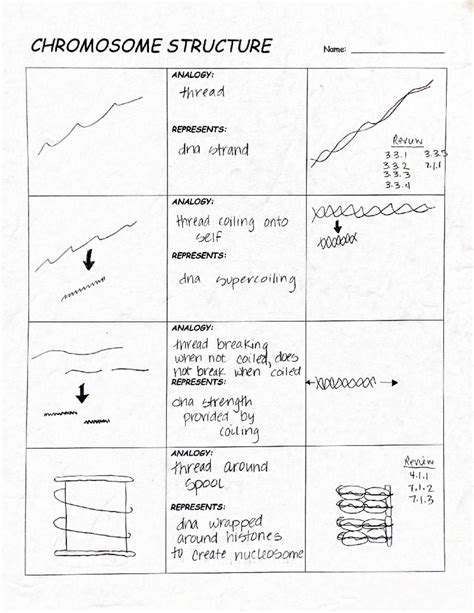 CHROMOSOME STRUCTURE
Name:
ANALOGY:
thread
REPRESENTS:
dna strand
Review
3.3.1 3.3.5
3.3.2 7.1.1
3.3.3
3.3.4
ANALOGY:
thread coiling onto
self
REPRESENTS:
dna supercoiling
ANALOGY:
thread breaking
when not coiled, does
not break when coiled
REPRESENTS:
dna strength
provided by
coiling
ANALOGY:
thread around
spool
REPRESENTS:
dna wrapped
around histones
to create nucleosome
Review
4.1.1
7.1.2
7.1.3